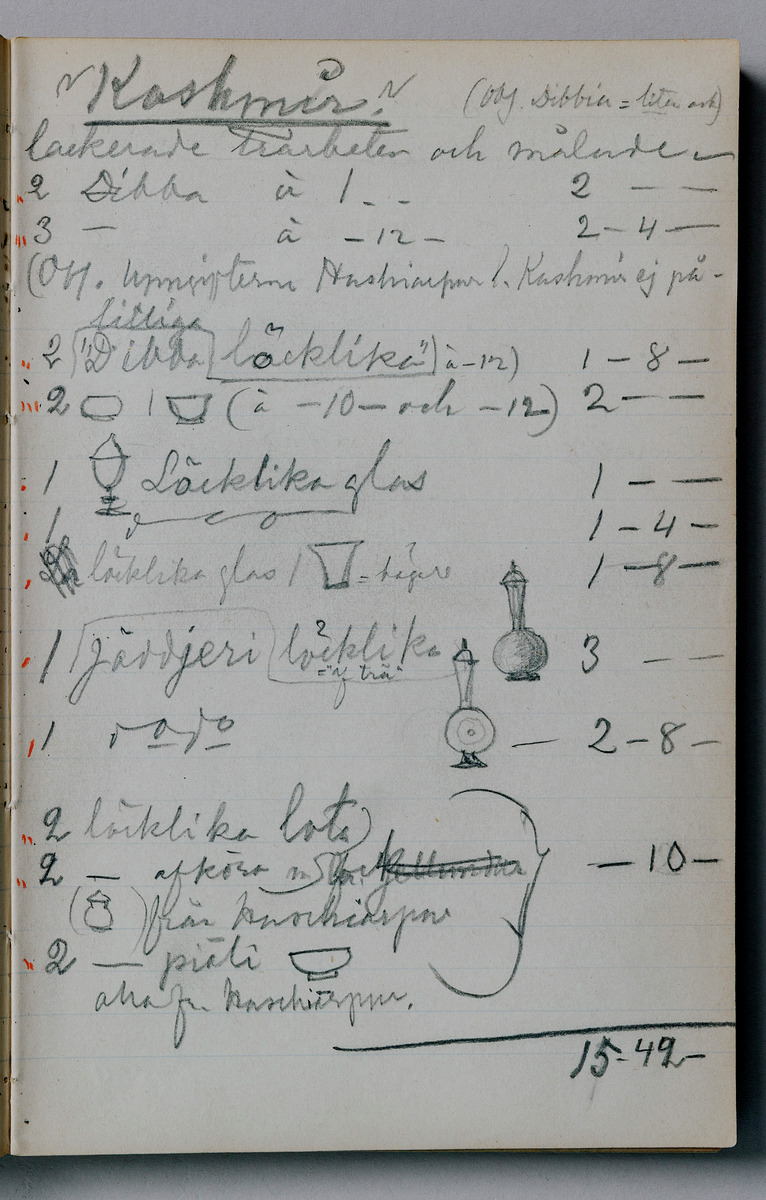 "Kashmir." (Obs. Dibbia = liten ask)
lackerade träarbeten och målade
2 Dibba à 1 - - 2 - -
3 — à - 12 - 2 - 4 -
(Obs. uppgifterna Hushiarpur l. Kashmir ej på-
litliga
2 "Dibba löcklika" à - 12) 1 - 8 -
2 1 (à - 10 - och - 12) 2 - -
1 Löcklika glas 1 - -
1 1 - 4 -
löcklika glas 1 = högre 1 - 8 -
1 jäddjeri löcklika 3 - -
= "af trä"
1 dodo — 2 - 8 -
2 löcklika lota
2 — - 10 -
från Huschiarpur
2 — piäli
alla fr. Huschiarpur.
15 - 42 -